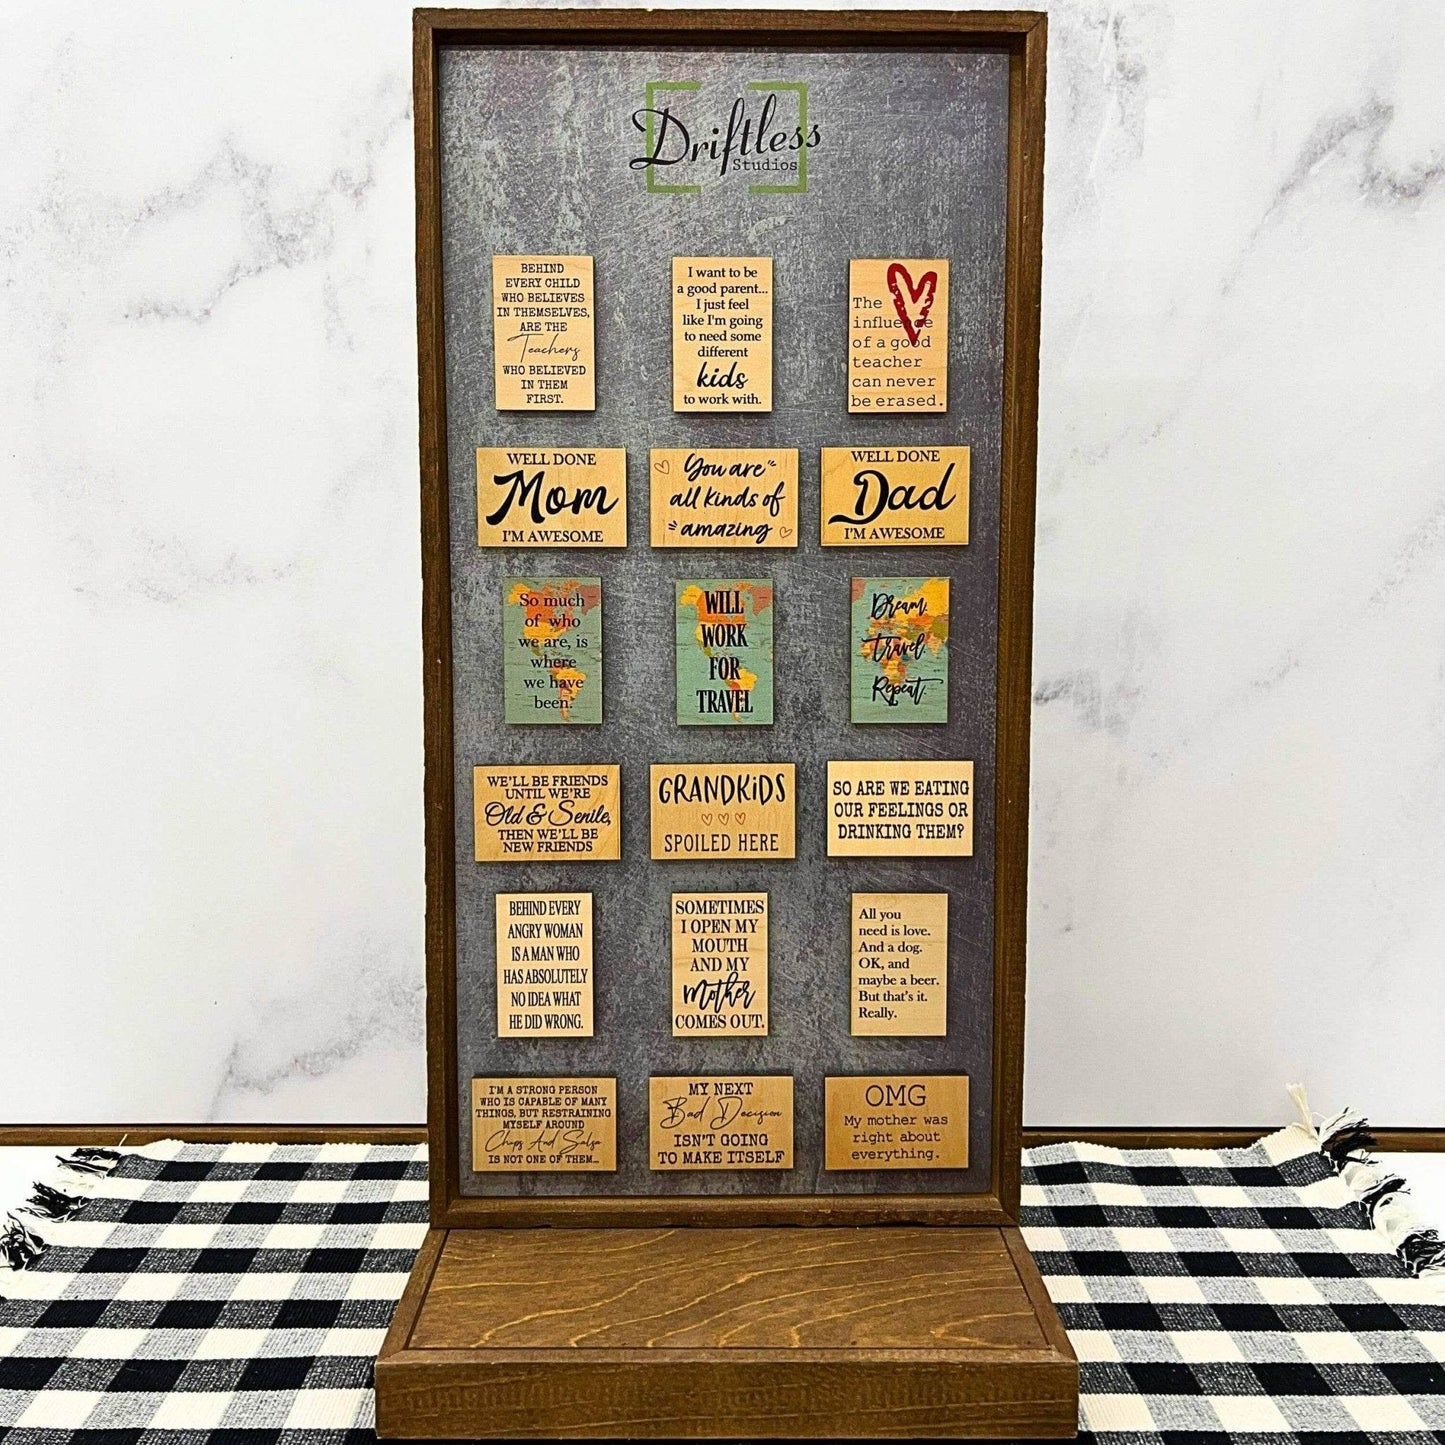 Driftless
Studios
BEHIND
EVERY CHILD
WHO BELIEVES
IN THEMSELVES,
ARE THE
Teachers
WHO BELIEVED
IN THEM
FIRST.
I want to be
a good parent...
I just feel
like I'm going
to need some
different
kids
to work with.
The
influence
of a good
teacher
can never
be erased.
WELL DONE
Mom
I'M AWESOME
You are
all kinds of
amazing
WELL DONE
Dad
I'M AWESOME
So much
of who
we are, is
where
we have
been.
WILL
WORK
FOR
TRAVEL
Dream.
Travel.
Repeat.
WE'LL BE FRIENDS
UNTIL WE'RE
Old & Senile,
THEN WE'LL BE
NEW FRIENDS
GRANDKIDS
SPOILED HERE
SO ARE WE EATING
OUR FEELINGS OR
DRINKING THEM?
BEHIND EVERY
ANGRY WOMAN
IS A MAN WHO
HAS ABSOLUTELY
NO IDEA WHAT
HE DID WRONG.
SOMETIMES
I OPEN MY
MOUTH
AND MY
Mother
COMES OUT.
All you
need is love.
And a dog.
OK, and
maybe a beer.
But that's it.
Really.
I'M A STRONG PERSON
WHO IS CAPABLE OF MANY
THINGS, BUT RESTRAINING
MYSELF AROUND
Chips And Salsa
IS NOT ONE OF THEM...
MY NEXT
Bad Decision
ISN'T GOING
TO MAKE ITSELF
OMG
My mother was
right about
everything.